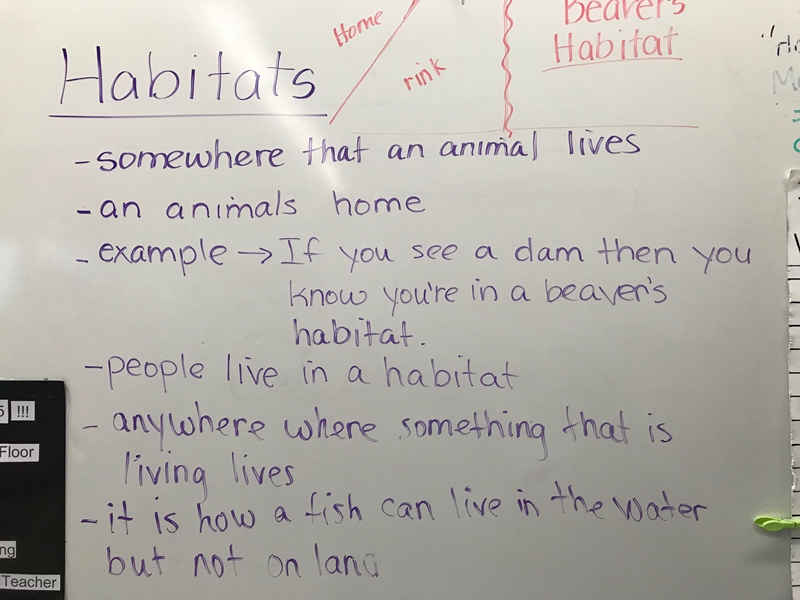 Home
rink
Beavers
Habitat
Habitats
- somewhere that an animal lives
- an animals home
- example → If you see a dam then you
know you're in a beaver's
habitat.
- people live in a habitat
- anywhere where something that is
living lives
- it is how a fish can live in the water
but not on land
!!!
Floor
Teacher